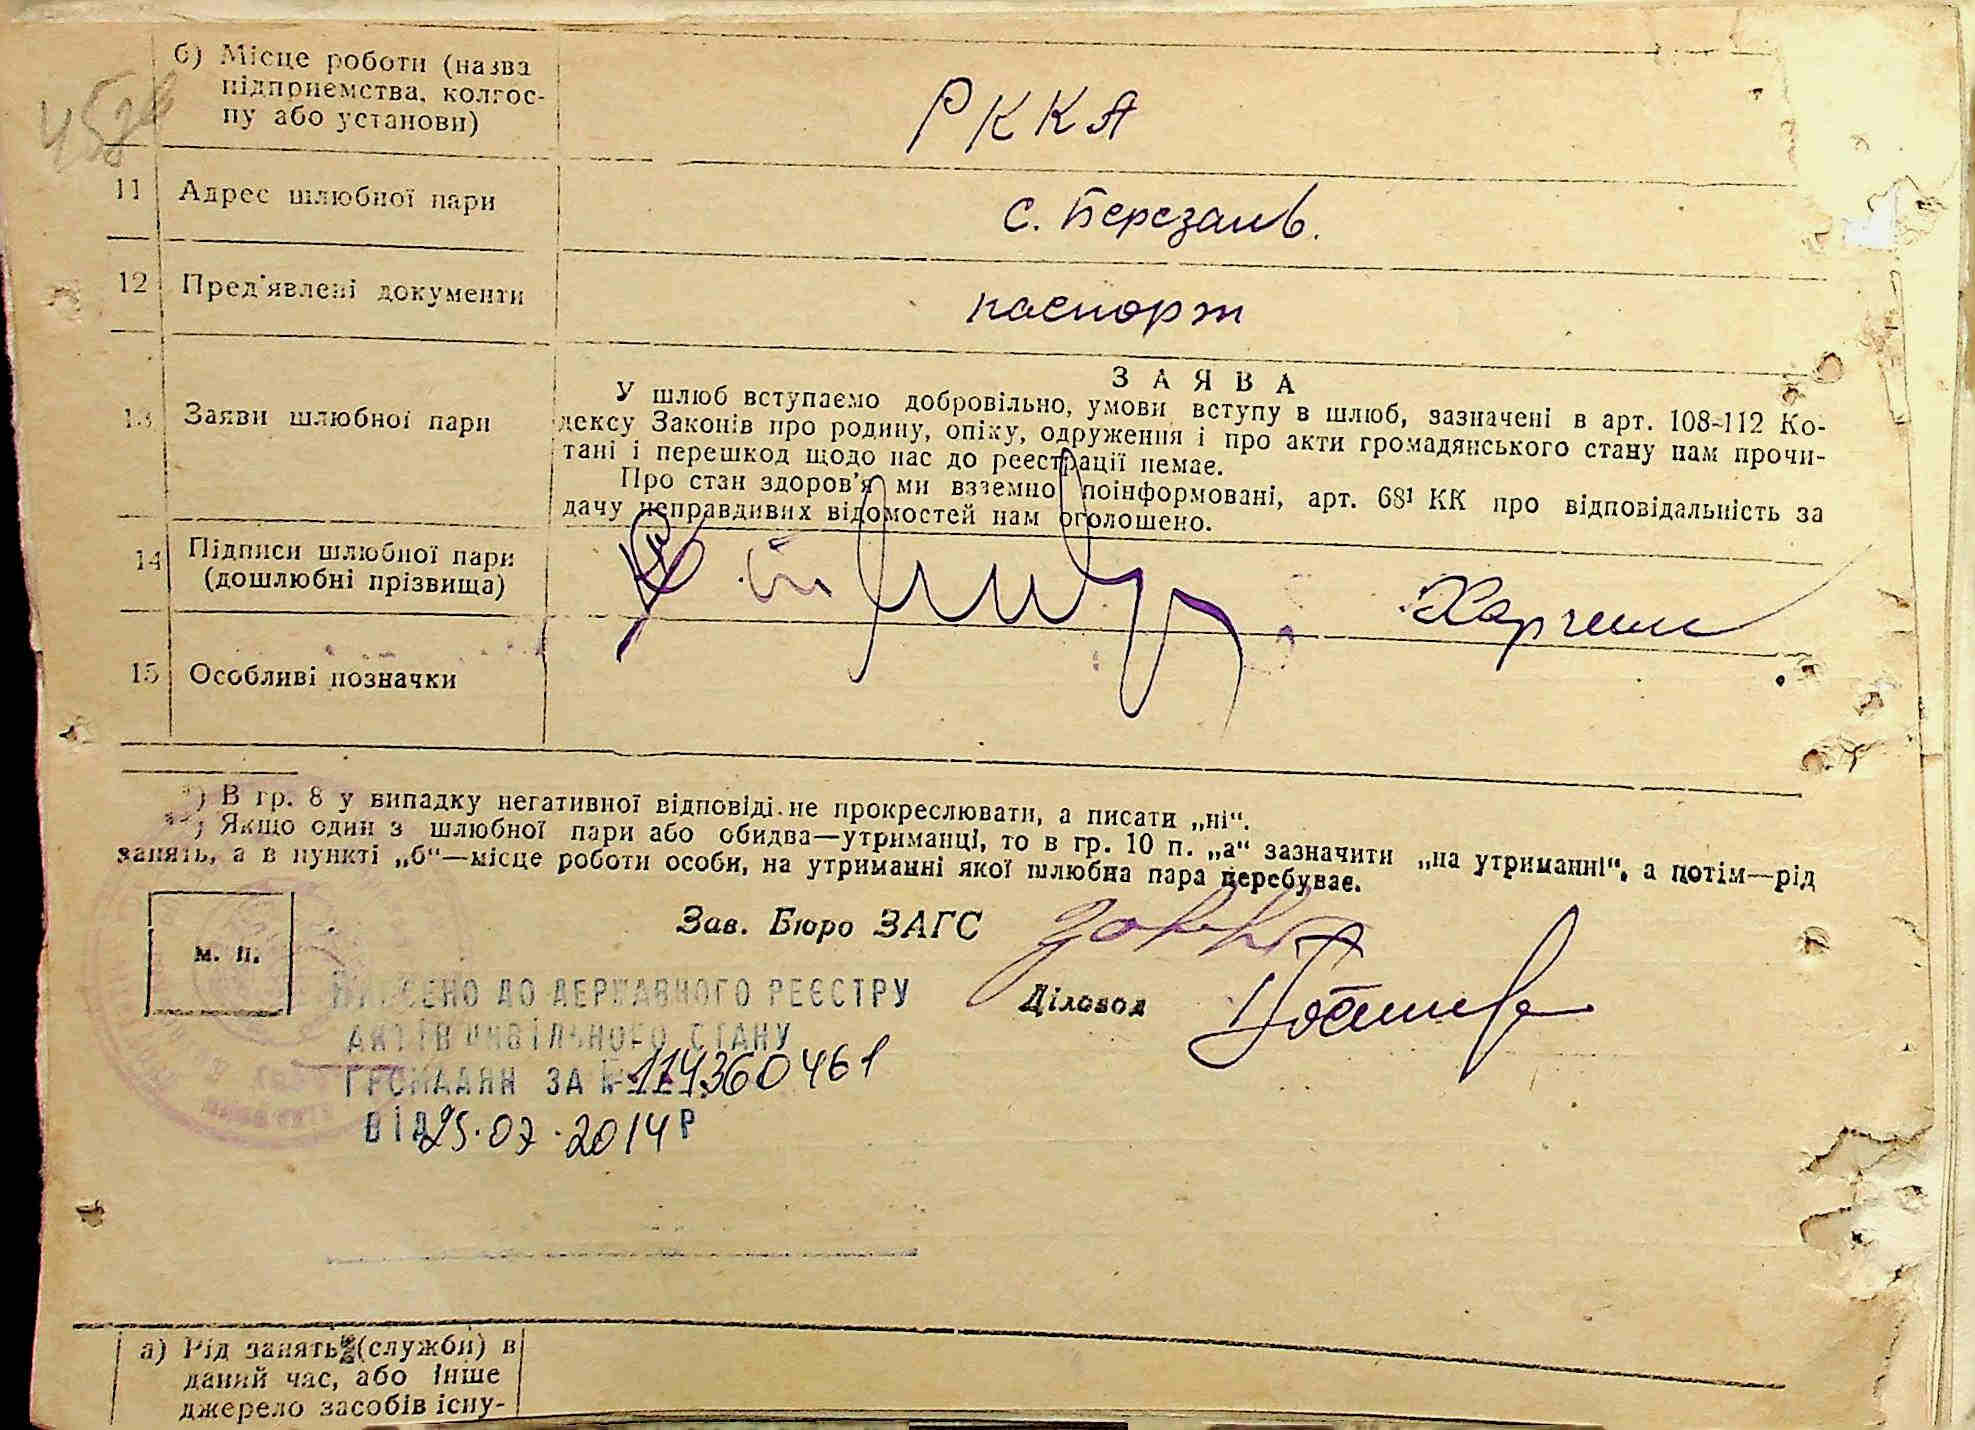 б) Місце роботи (назва
підприємства, колгос-
пу або установи)
РККА
11 Адрес шлюбної пари
с. Березань.
12 Пред'явлені документи
паспорт
13 Заяви шлюбної пари
ЗАЯВА
У шлюб вступаємо добровільно, умови вступу в шлюб, зазначені в арт. 108-112 Ко-
дексу Законів про родину, опіку, одруження і про акти громадянського стану нам прочи-
тані і перешкод щодо нас до реєстрації немає.
Про стан здоров'я ми взаємно поінформовані, арт. 68¹ КК про відповідальність за
дачу неправдивих відомостей нам оголошено.
14 Підписи шлюбної пари
(дошлюбні прізвища)
15 Особливі позначки
*) В гр. 8 у випадку негативної відповіді не прокреслювати, а писати „ні“.
**) Якщо один з шлюбної пари або обидва—утриманці, то в гр. 10 п. „а“ зазначити „на утриманні“, а потім—рід
занять, а в пункті „б“—місце роботи особи, на утриманні якої шлюбна пара перебуває.
Зав. Бюро ЗАГС
м. п.
Діловод
ВНЕСЕНО ДО ДЕРЖАВНОГО РЕЄСТРУ
АКТІВ ЦИВІЛЬНОГО СТАНУ
ГРОМАДЯН ЗА № 114360461
ВІД 25.07.2014 Р
а) Рід занять (служби) в
даний час, або інше
джерело засобів існу-